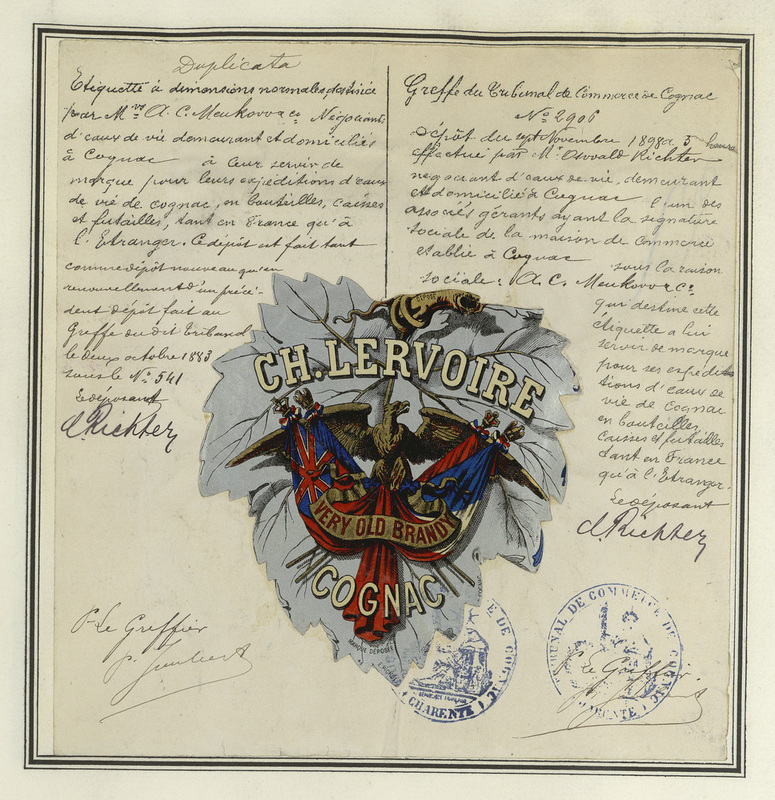 Duplicata
Etiquette à dimensions normales destinée
par Mrs A. C. Meukow & Co Négociants
d'eaux de vie demeurant et domiciliés
à Cognac à leur servir de
marque pour leurs expéditions d'eaux
de vie de cognac, en bouteilles, caisses
et futailles, tant en France qu'à
l'Etranger. Ce dépôt est fait tant
comme dépôt nouveau qu'en
renouvellement d'un précé-
dent dépôt fait au
Greffe du dit Tribunal
le deux octobre 1883
sous le No 541
Le déposant
O. Richter
P. Le Greffier
Greffe du Tribunal de Commerce de Cognac
No 2906
Dépôt du sept Novembre 1898 à 3 heures
effectué par Mr Oswald Richter
négociant d'eaux de vie, demeurant
et domicilié à Cognac l'un des
associés gérants ayant la signature
sociale de la maison de commerce
établie à Cognac sous la raison
sociale: A. C. Meukow & Co
qui destine cette
étiquette a lui
servir de marque
pour ses expédi-
tions d'eaux de
vie de Cognac
en bouteilles,
caisses et futailles
tant en France
qu'à l'Etranger.
Le déposant
O. Richter
DÉPOSÉ
CH. LERVOIRE
VERY OLD BRANDY
COGNAC
MARQUE DÉPOSÉE
DE COGNAC
RÉPUBLIQUE FRANÇAISE
CHARENTE
TRIBUNAL DE COMMERCE DE COGNAC
P. Le Greffier
CHARENTE